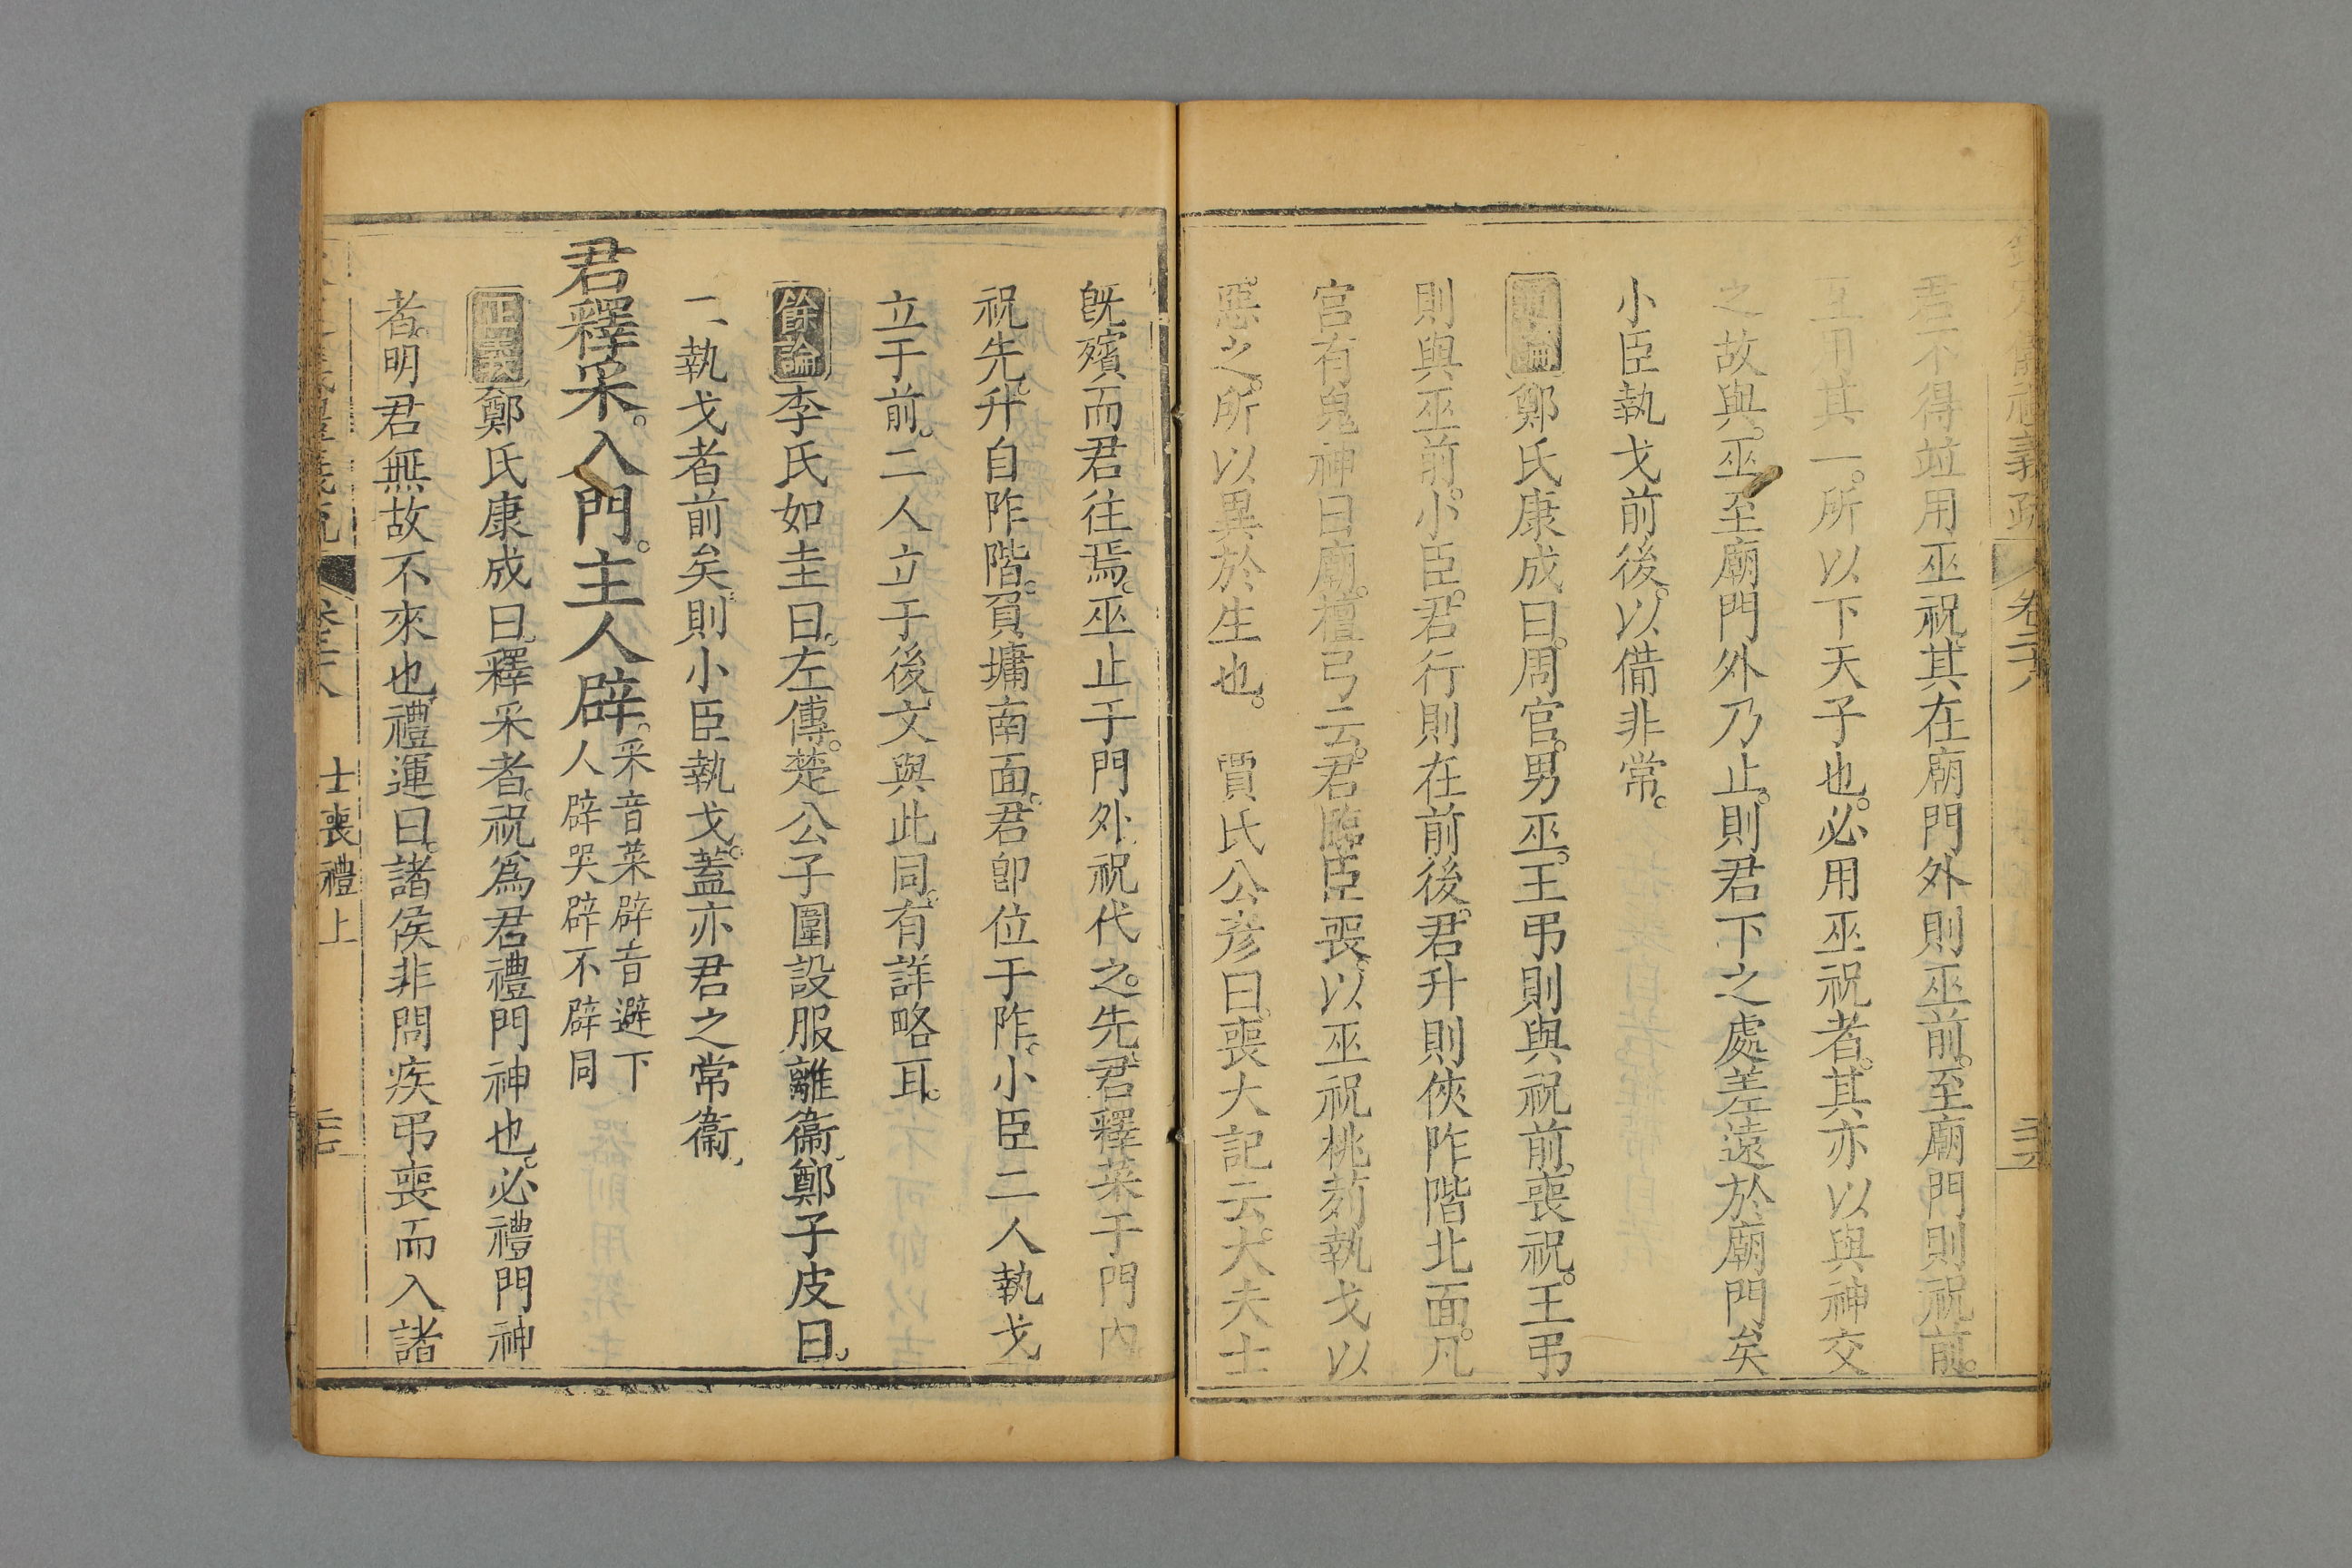 君不得竝用巫祝其在廟門外則巫前。至廟門則祝前。
互用其一。所以下天子也。必用巫祝者。其亦以與神交
之故與。巫至廟門外乃止。則君下之處差遠於廟門矣
小臣執戈前後。以備非常。
通論鄭氏康成曰。周官。男巫。王弔則與祝前。喪祝。王弔
則與巫前。小臣。君行則在前後。君升則俠阼階北面。凡
宮有鬼神曰廟。檀弓云。君臨臣喪。以巫祝桃茢執戈以
惡之。所以異於生也。 賈氏公彥曰。喪大記云。大夫士
旣殯而君往焉。巫止于門外。祝代之。先。君釋菜于門内
祝先。升自阼階。負墉南面。君卽位于阼。小臣二人執戈
立于前。二人立于後。文與此同。有詳略耳。
餘論李氏如圭曰。左傳。楚公子圍設服離衞。鄭子皮曰。
二執戈者前矣。則小臣執戈。蓋亦君之常衞。
君釋采。入門。主人辟。采音菜辟音避下
人辟哭辟不辟同
正義鄭氏康成曰。釋采者。祝爲君禮門神也。必禮門神
者。明君無故不來也。禮運曰。諸侯非問疾弔喪而入諸
士喪禮上